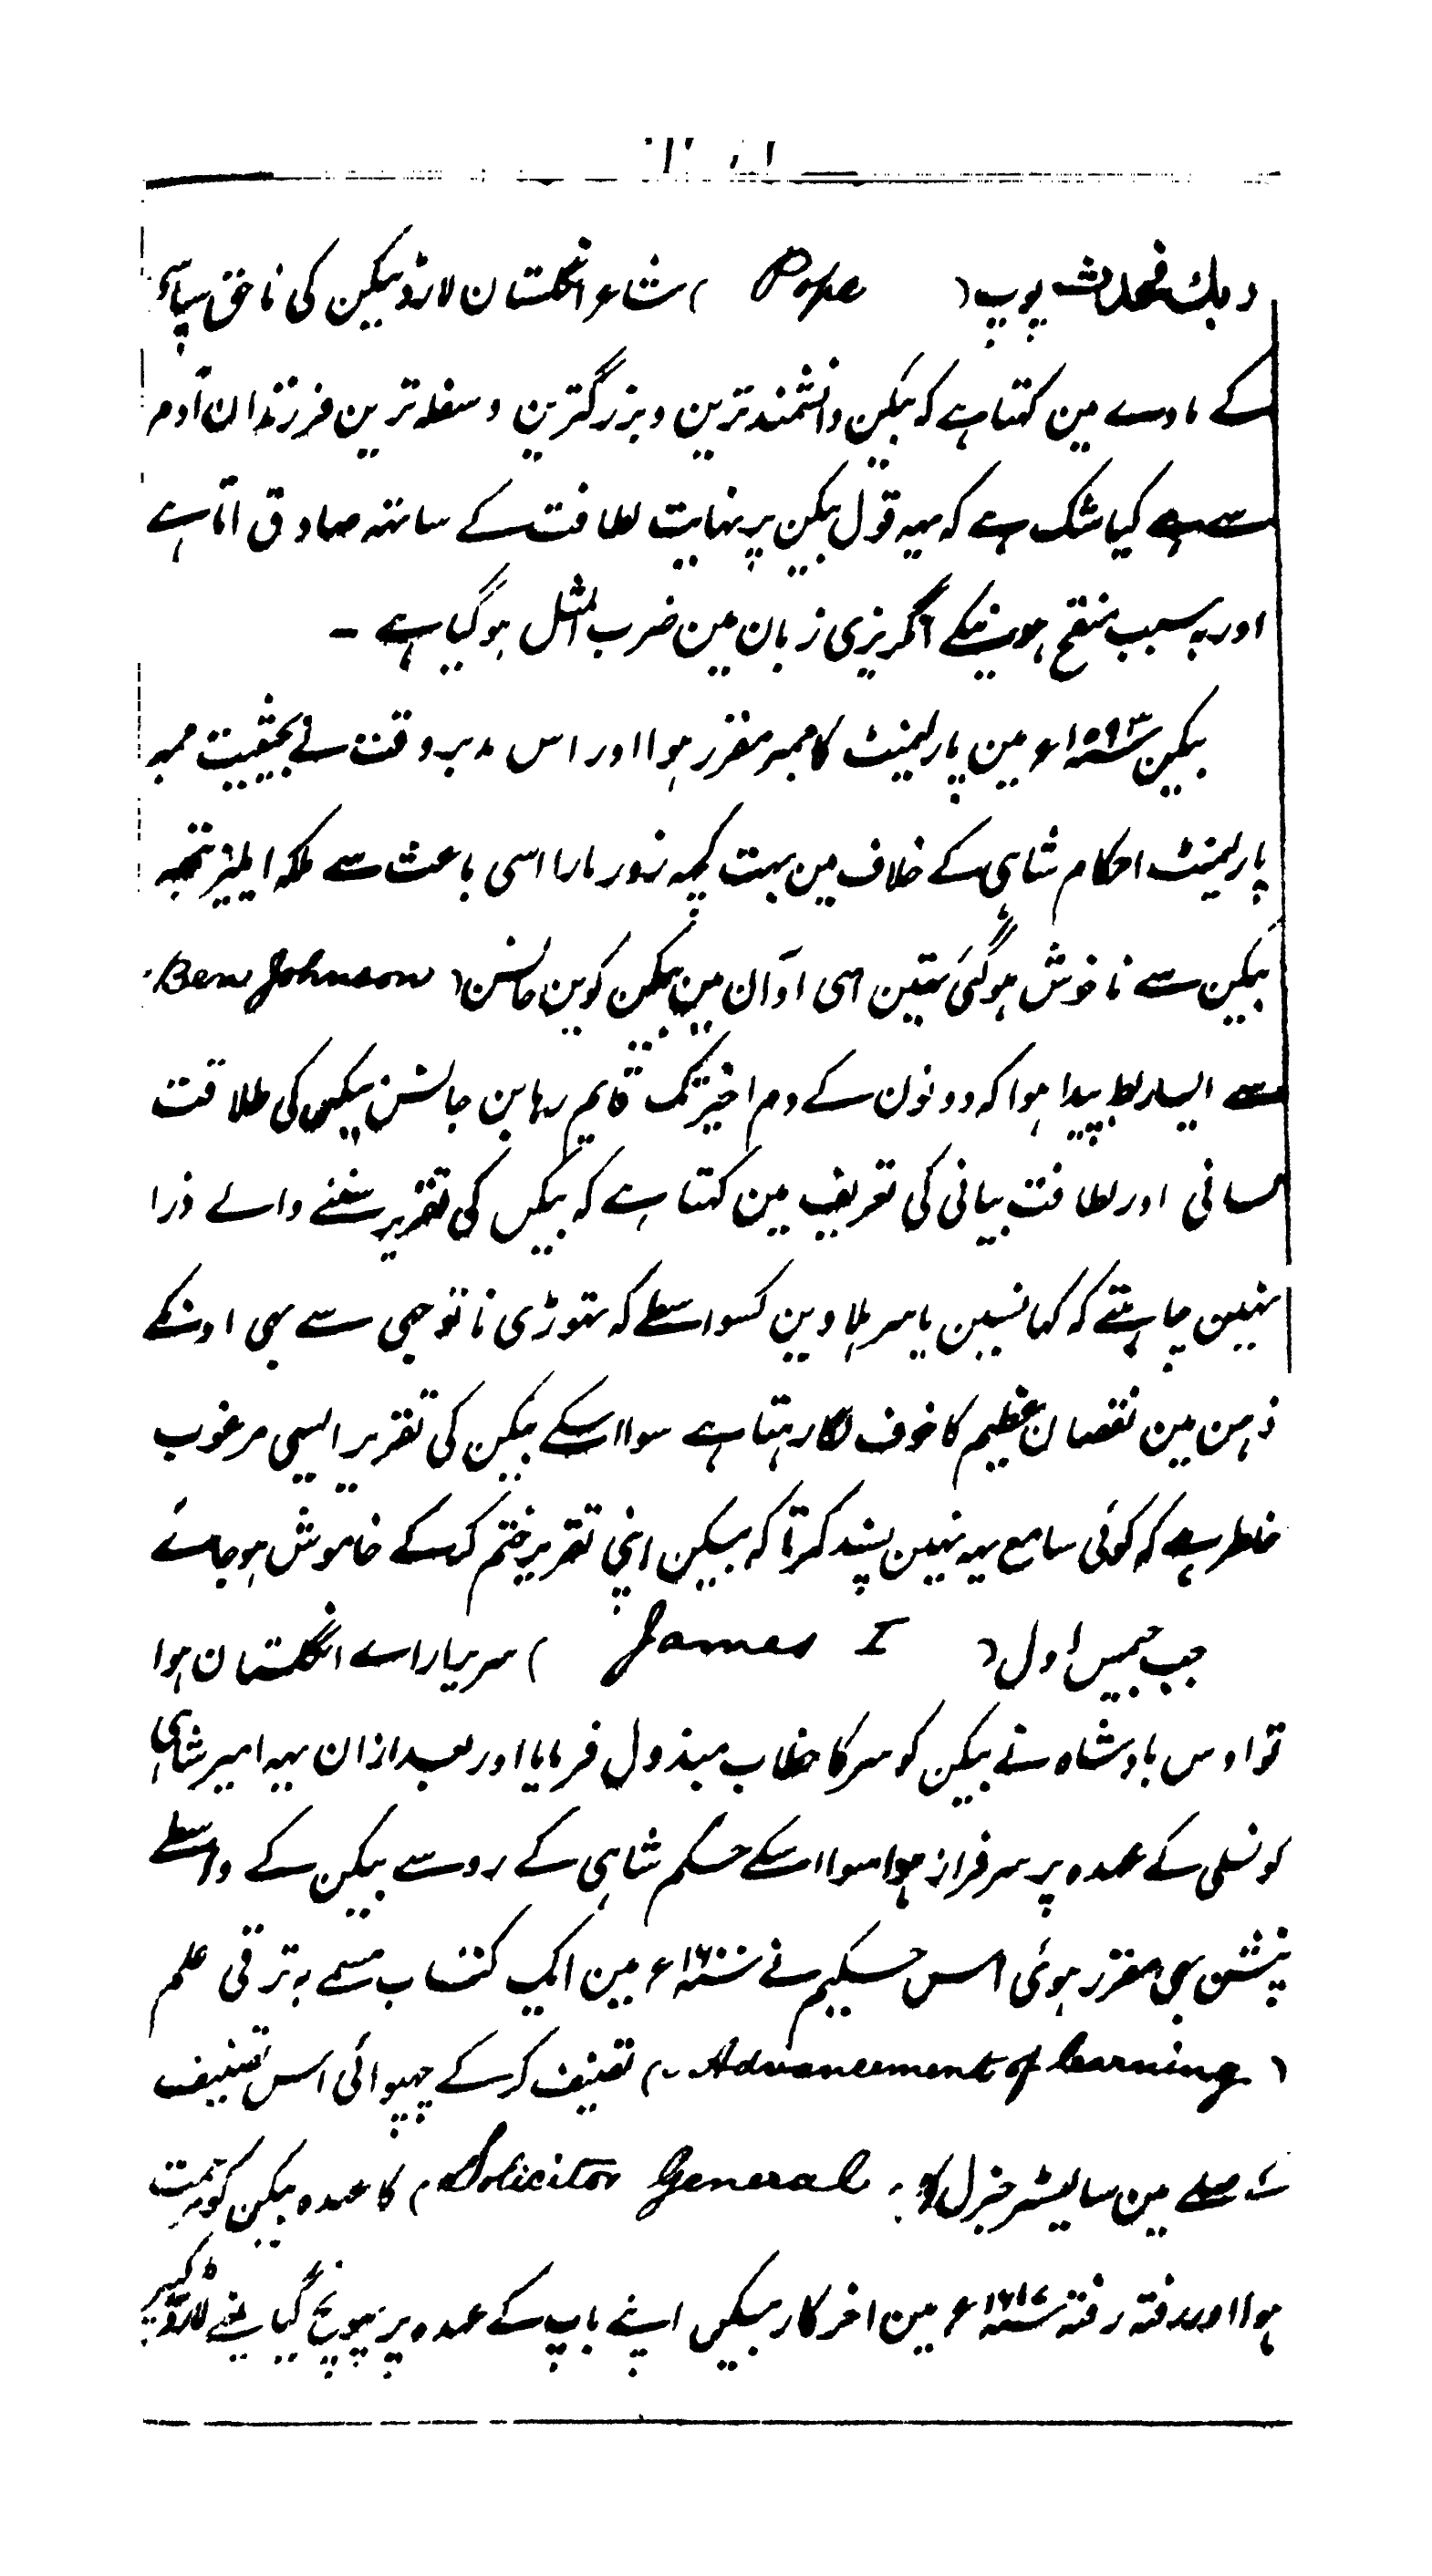 پوپ ( Pope ) شاعر انگلستان لارڈ بیکن کی ناحق سپاسی
کے مادے مین کہتا ہے کہ بیکن دانشمند ترین و بزرگترین و سفلہ ترین فرزندان آدم
سے ہے کیا شک ہے کہ یہہ قول بیکن پر نہایت لطافت کے ساتہہ صادق آتا ہے
اور بہ سبب منقح ہونیکے انگریزی زبان مین ضرب المثل ہو گیا ہے -
بیکن ۱۵۹۳ء مین پارلیمنٹ کا ممبر مقرر ہوا اور اس مدبر وقت نے بحیثیت ممبر
پارلیمنٹ احکام شاہی کے خلاف مین بہت کچہہ زور مارا اسی باعث سے ملکہ ایلیزبتہہ
بیکن سے ناخوش ہو گئی تہین اسی اوآن مین بیکن کو بن جانسن ( Ben Johnson
سے ایسا ربط پیدا ہوا کہ دونون کے دم اخیر تک قایم رہا بن جانسن بیکن کی طلاقت
لسانی اور لطافت بیانی کی تعریف مین کہتا ہے کہ بیکن کی تقریر سننے والے ذرا
نہین چاہتے کہ کہانسین یا سر ہلاوین کسواسطے کہ تہوڑی ناتوجہی سے بہی اونکے
ذہن مین نقصان عظیم کا خوف لگا رہتا ہے سوا اسکے بیکن کی تقریر ایسی مرغوب
خاطر ہے کہ کوئی سامع یہہ نہین پسند کرتا کہ بیکن اپنی تقریر ختم کر کے خاموش ہو جائے
جب جیمیس اول ( James I ) سریر آراے انگلستان ہوا
تو اوس بادشاہ نے بیکن کو سر کا خطاب مبذول فرمایا اور بعد ازان یہہ امیر شاہی
کونسلی کے عہدہ پر سرفراز ہوا سوا اسکے حکم شاہی کے رو سے بیکن کے واسطے
پنشن بہی مقرر ہوئی اس حکیم نے ء مین ایک کتاب مسمے بہ ترقی علم
( Advancement of learning ) تصنیف کر کے چہپوائی اس تصنیف
کے صلے مین سالیسٹر جنرل ( Solicitor General ) کا عہدہ بیکن کو
ہوا اور رفتہ رفتہ ۱۶۱۷ء مین اخر کار بیکن اپنے باپ کے عہدہ پر پہونچ گیا یعنے لارڈ کیپر